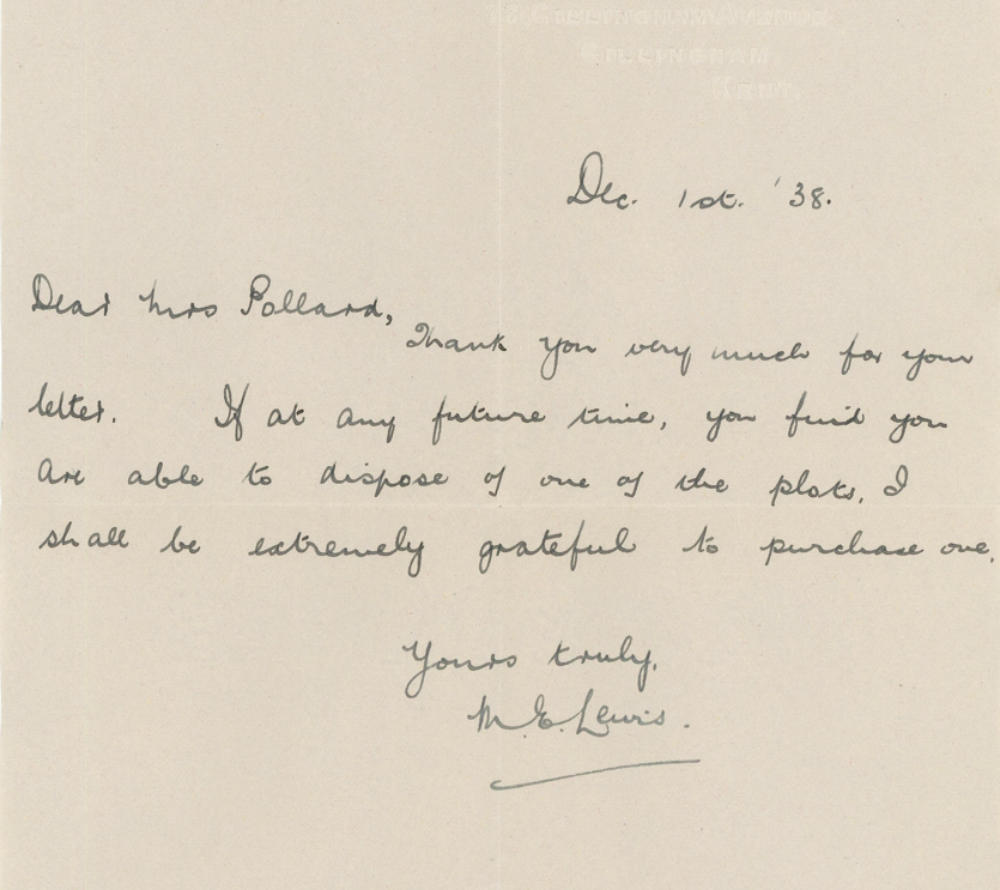 GILLINGHAM
KENT.
Dec. 1st. '38.
Dear Mrs Pollard,
Thank you very much for your
letter. If at any future time, you find you
are able to dispose of one of the plots, I
shall be extremely grateful to purchase one.
Yours truly,
M.E. Lewis.